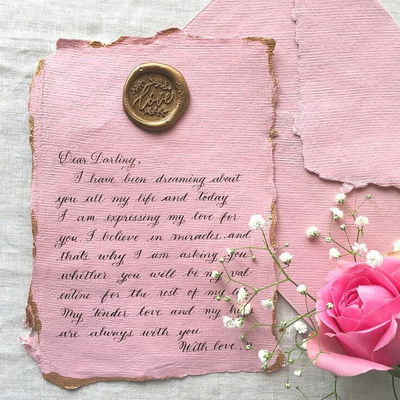 love
Dear Darling,
I have been dreaming about
you all my life and today
I am expressing my love for
you. I believe in miracles and
thats why I am asking you
whether you will be my val
entine for the rest of my
My tender love and my
are always with you.
With love,